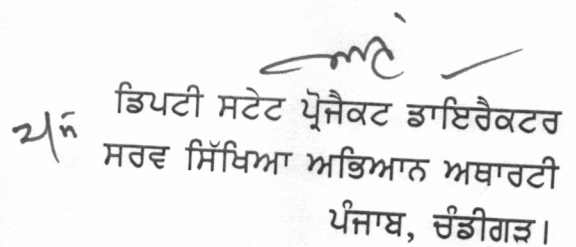 ਡਿਪਟੀ ਸਟੇਟ ਪ੍ਰੋਜੈਕਟ ਡਾਇਰੈਕਟਰ
ਸਰਵ ਸਿੱਖਿਆ ਅਭਿਆਨ ਅਥਾਰਟੀ
ਪੰਜਾਬ, ਚੰਡੀਗੜ।